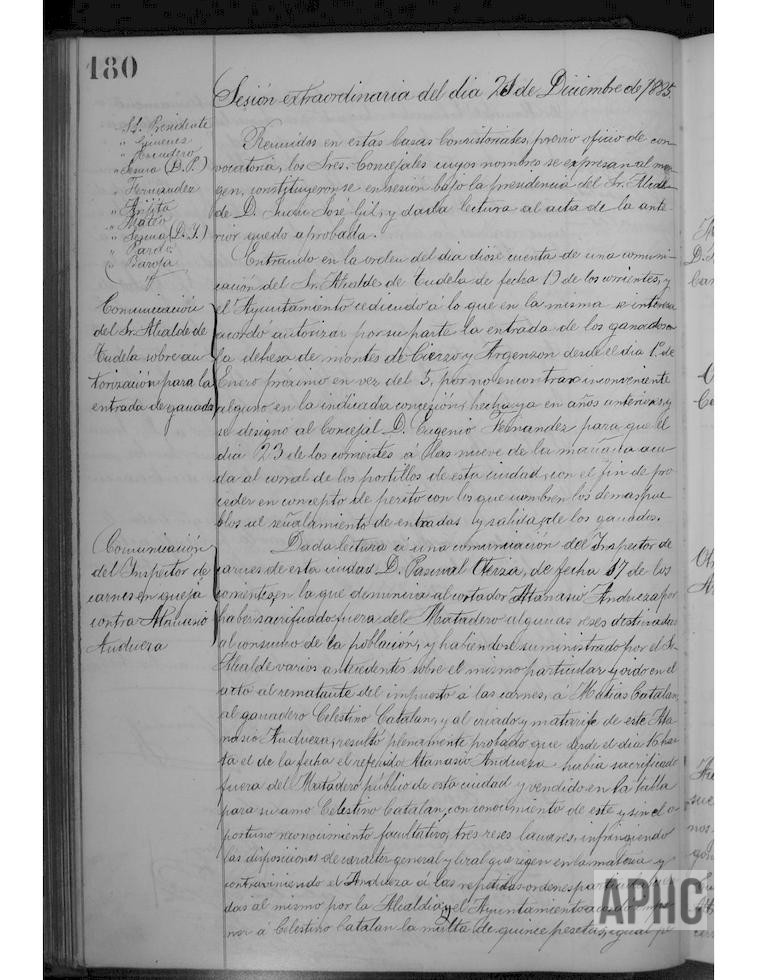 180
Sesión extraordinaria del dia 21 de Diciembre de 1885.
Sr. Presidente
" Gimenez
" Escudero
" Sesma (D. P.)
" Fernandez
" Mateo
" Sesma (D. Y.)
" Pardo
" Baroja
Reunidos en estas Casas Consistoriales, previo oficio de con-
vocatoria, los Sres. Concejales cuyos nombres se expresan al mar-
gen, constituyeronse en sesión bajo la presidencia del Sr. Alcal-
de D. Juan José Gil, y dada lectura al acta de la ante-
rior quedo aprobada.
Entrando en la orden del dia diose cuenta de una comuni-
cación del Sr. Alcalde de Tudela de fecha 19 de los corrientes, y
el Ayuntamiento accediendo á lo que en la misma se interesa
acordó autorizar por su parte la entrada de los ganados en
la dehesa de montes de Cierzo y Argenzon desde el dia 1º de
Enero próximo en vez del 5, por no encontrar inconveniente
alguno en la indicada concesión, hecha ya en años anteriores, y
se designó al Concejal D. Eugenio Fernandez para que el
dia 23 de los corrientes á las nueve de la mañana acu-
da al corral de los portillos de esta ciudad, con el fin de pro-
ceder en concepto de perito con los que nombren los demas pue-
blos al señalamiento de entradas y salidas de los ganados.
Comunicación
del Sr. Alcalde de
Tudela sobre au-
torización para la
entrada de ganados
Dada lectura á una comunicación del Inspector de
carnes de esta ciudad D. Pascual de fecha 17 de los
corrientes, en la que denuncia al cortador Atanasio Andueza por
haber sacrificado fuera del Matadero algunas reses destinadas
al consumo de la población, y habiendose suministrado por el Sr.
Alcalde varios antecedentes sobre el mismo particular y oido en el
acto al rematante del impuesto á las carnes, á Matias Catalan,
al ganadero Celestino Catalan, y al criado y matarife de este Ata-
nasio Andueza, resultó plenamente probado que desde el dia 16 has-
ta el de la fecha el referido Atanasio Andueza habia sacrificado
fuera del Matadero público de esta ciudad y vendido en la tabla
para su amo Celestino Catalan, con conocimiento de este y sin el o-
portuno reconocimiento facultativo, tres reses lanares, infringiendo
las disposiciones de caracter general y local que rigen en la materia y
contraviniendo el Andueza á las repetidas ordenes particulares
das al mismo por la Alcaldia, y el Ayuntamiento
ner á Celestino Catalan la multa de quince pesetas, igual
Comunicación
del Inspector de
carnes en queja
contra Atanasio
Andueza
APHC